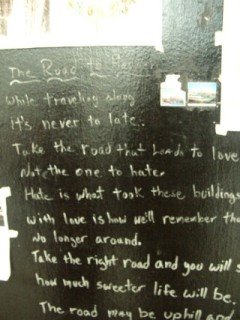 The Road
While traveling along
it's never to late.
Take the road that leads to love
Not the one to hate.
Hate is what took these buildings
with love is how we'll remember tha
No longer around.
Take the right road and you will s
how much sweeter life will be.
The road may be uphill and